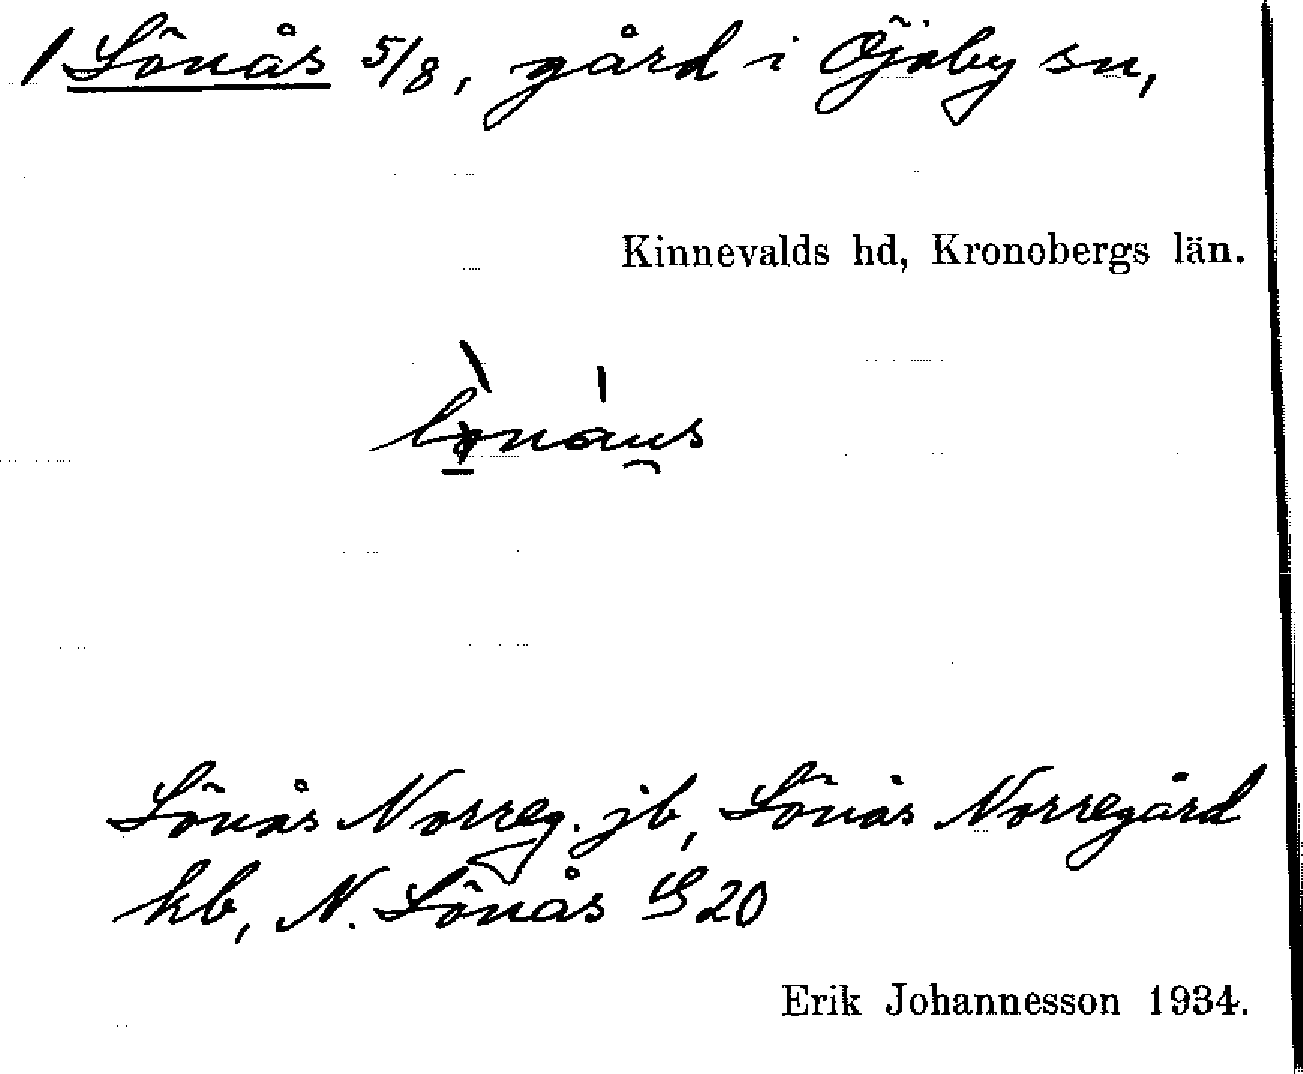 1 Lönås 5/8, gård i Öjaby sn,
Kinnevalds hd, Kronobergs län.
Lönås Norreg. jb, Lönås Norregård
kb, N. Lönås G 20
Erik Johannesson 1934.